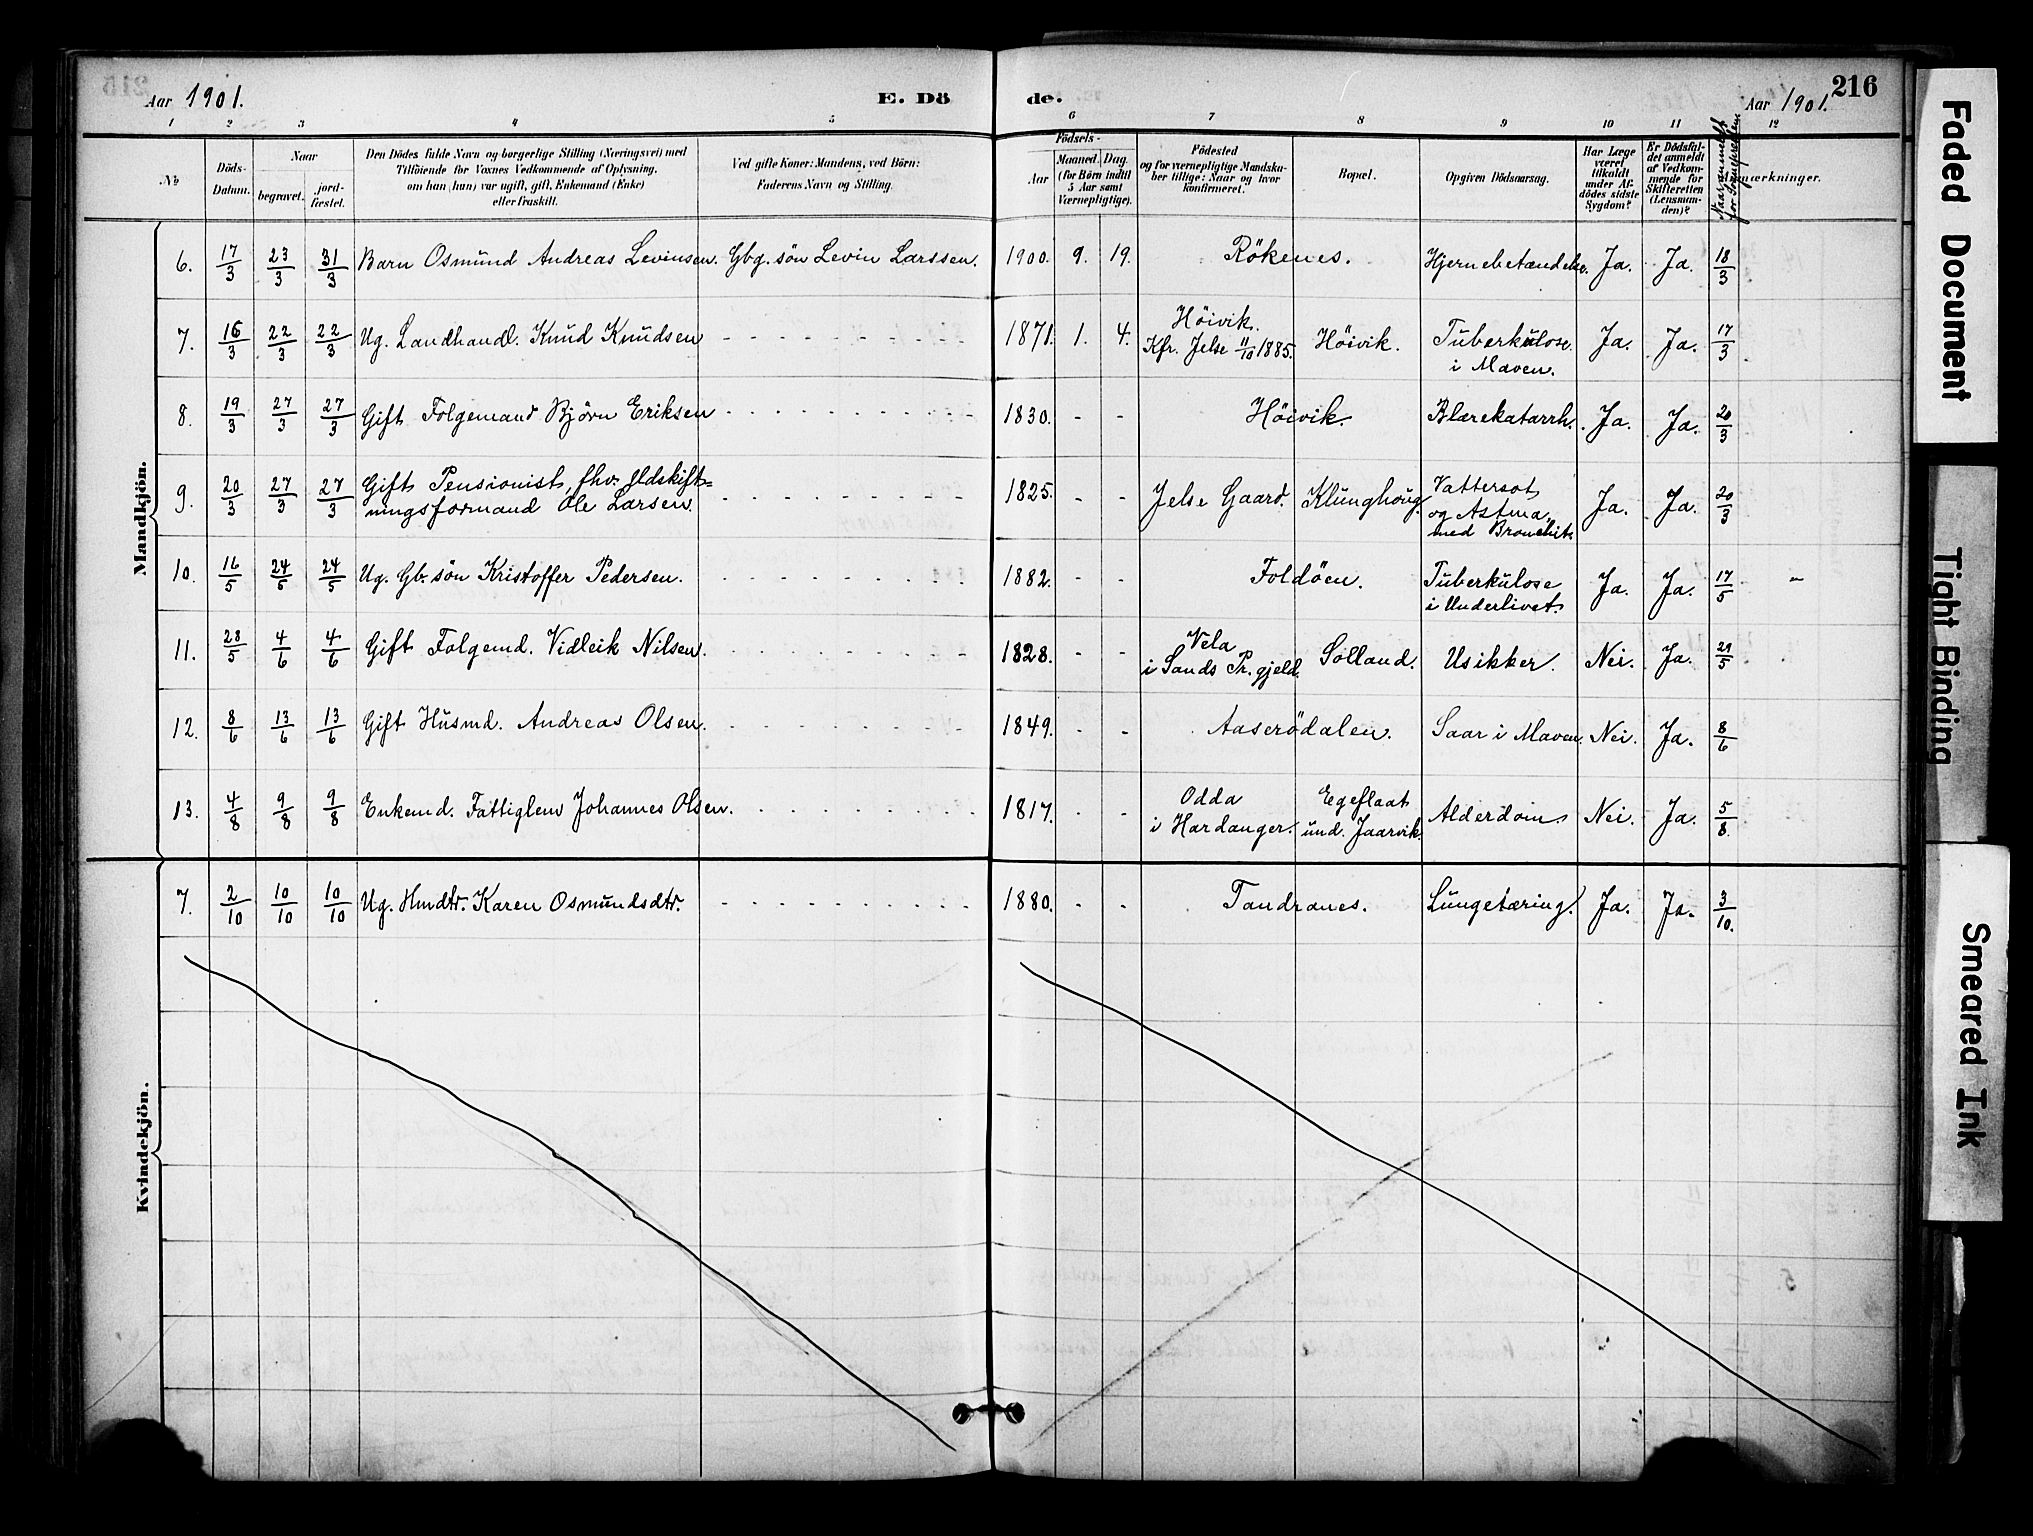 Aar 1901.
E. Dö
de.
Aar 1901.
216
1 2 3 4 5 6 7 8 9 10 11 12
№
Döds-
Datum.
Naar
begravet.
jord-
fæstet.
Den Dödes fulde Navn og borgerlige Stilling (Næringsvei) med
Tilföiende for Voxnes Vedkommende af Oplysning,
om han (hun) var ugift, gift, Enkemand (Enke)
eller fraskilt.
Ved gifte Koner: Mandens, ved Börn:
Faderens Navn og Stilling.
Födsels-
Aar
Maaned.
Dag.
(for Börn indtil
5 Aar samt
Værnepligtige).
Födested
og for værnepligtige Mandska-
ber tillige: Naar og hvor
konfirmeret.
Bopæl.
Opgiven Dödsaarsag.
Har Læge
været
tilkaldt
under Af-
dödes sidste
Sygdom?
Er Dödsfal-
det anmeldt
af Vedkom-
mende for
Skifteretten
(Lensman-
den)?
Naar anmeldt
for Sognepresten
Mandkjön.
6. 17/3 23/3 31/3 Barn Osmund Andreas Levinsen. Gbg. sön Levin Larssen. 1900. 9. 19. Rökenes. Hjernebetændelse. Ja. Ja. 18/3
7. 16/3 22/3 22/3 Ug. Landhandl. Knud Knudsen 1871. 1. 4. Höivik.
Kfr. Jelse 11/10 1885. Höivik. Tuberkulose
i Maven. Ja. Ja. 17/3
8. 19/3 27/3 27/3 Gift Folgemand Björn Eriksen 1830. - - Höivik. Blærekatarrh. Ja. Ja. 20/3
9. 20/3 27/3 27/3 Gift Pensionist, fhv. Udskift=
ningsformand Ole Larsen. 1825. - - Jelse Gaard. Klunghoug. Vattersot
og Astma,
med Bronchit. Ja. Ja. 20/3
10. 16/5 24/5 24/5 Ug. Gb. sön Kristoffer Pedersen. 1882. - - Foldöen. Tuberkulose
i Underlivet. Ja. Ja. 17/5
11. 28/5 4/6 4/6 Gift Folgemd. Vidleik Nilsen. 1828. - - Vela
i Sands Pr. gjeld. Solland. Usikker. Nei. Ja. 29/5
12. 8/6 13/6 13/6 Gift Husmd. Andreas Olsen. 1849. - - Aaserödalen. Saar i Maven. Nei. Ja. 8/6
13. 4/8 9/8 9/8 Enkemd. Fattiglem Johannes Olsen. 1817. - - Odda
i Hardanger. Egeflaat
und. Jaarvik. Alderdom. Nei. Ja. 5/8.
Kvindekjön.
7. 2/10 10/10 10/10 Ug. Hmdtr. Karen Osmundsdtr. 1880. - - Tandranes. Lungetæring. Ja. Ja. 3/10.
Faded Document
Tight Binding
Smeared Ink